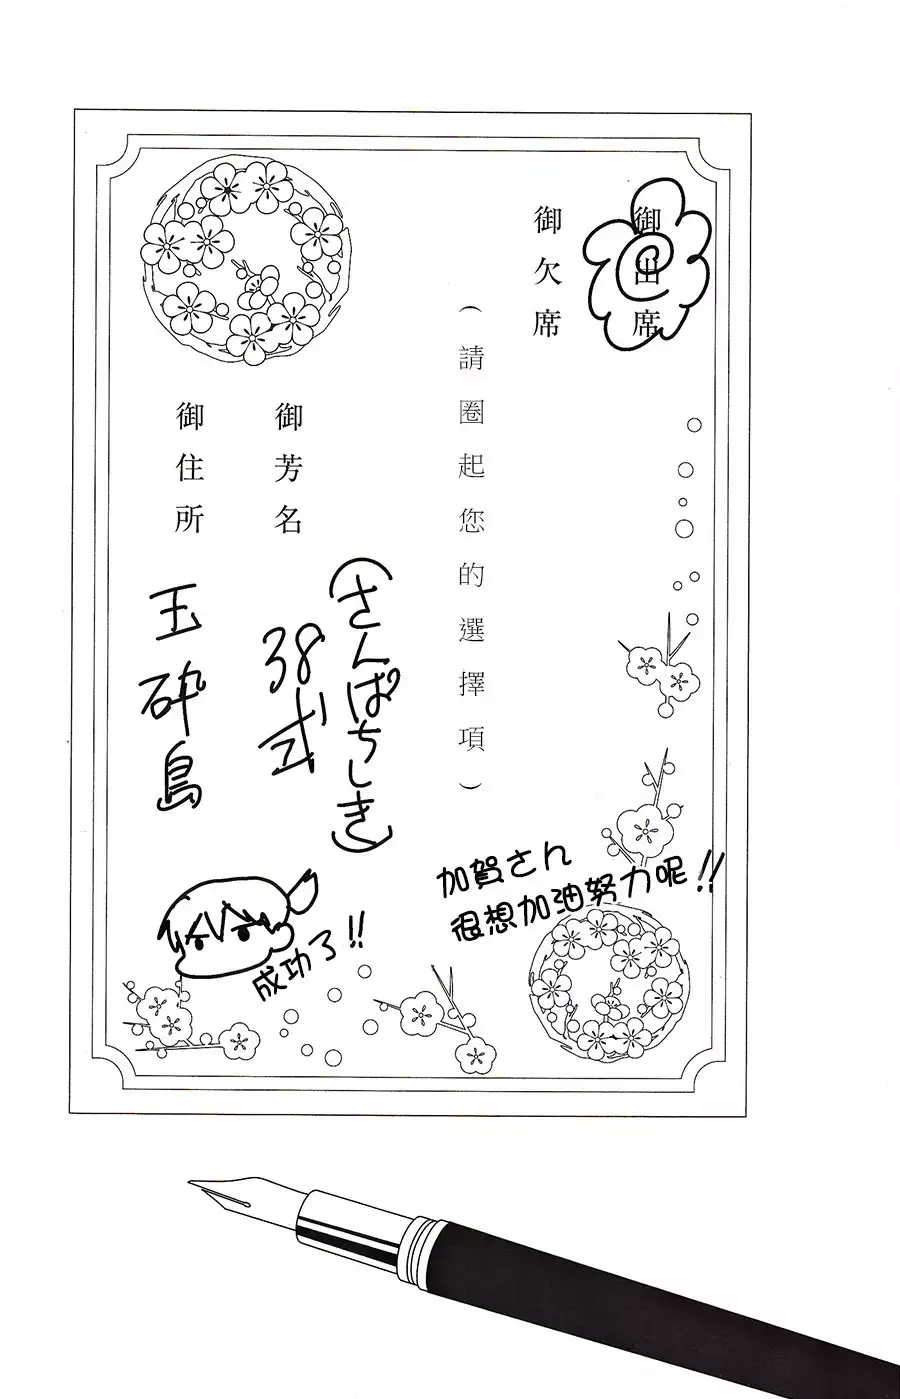 御出席
御欠席
（請圈起您的選擇項）
御芳名
御住所
(さんぱちしき)
38式
玉砕島
加賀さん
很想加油努力呢!!
成功了!!